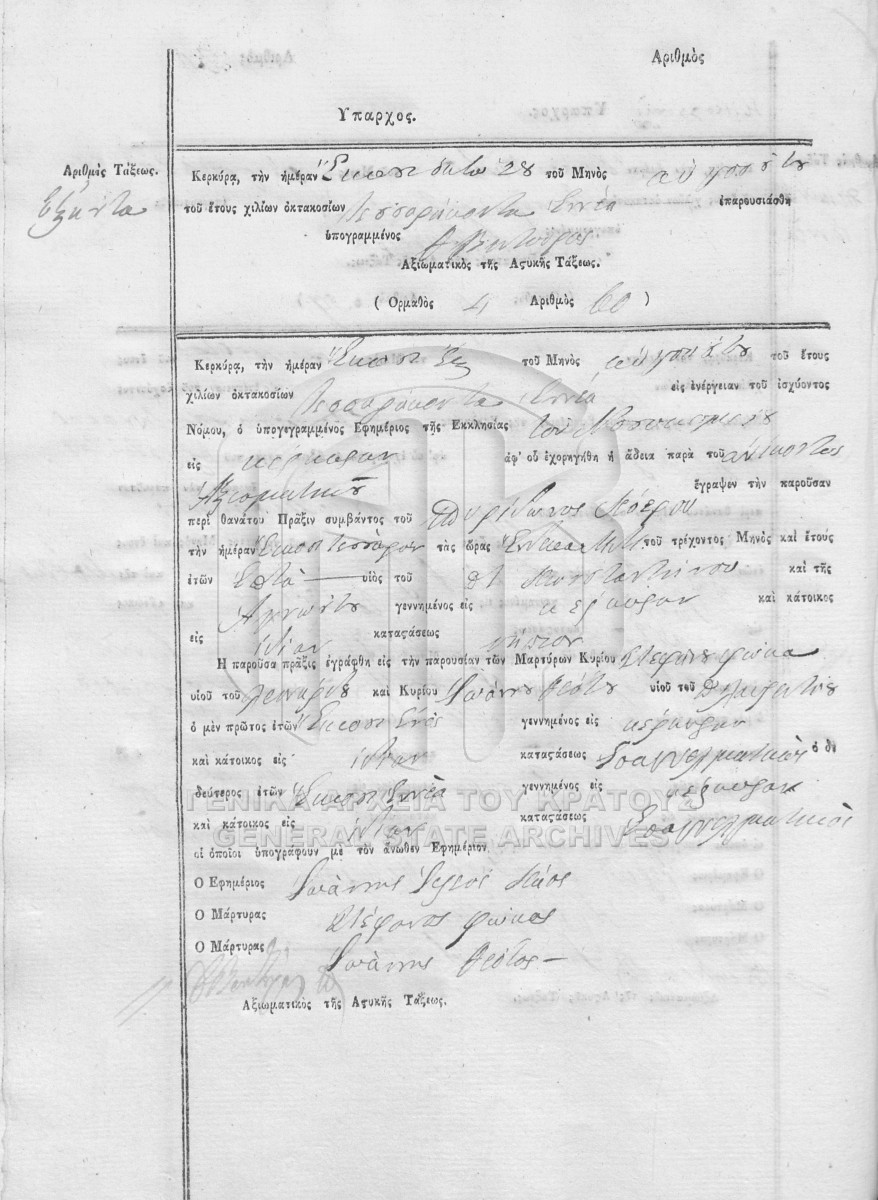 Αριθμὸς
Υπαρχος.
Αριθμὸς Τάξεως.
Εξῆντα
Κερκύρᾳ, τὴν ἡμέραν Εικοσι οκτω 28 τοῦ Μηνὸς αὐγουστου
τοῦ ἔτους χιλίων ὀκτακοσίων τεσσαράκοντα Εννέα ἐπαρουσιάσθη
ὑπογραμμένος
Αξιωματικὸς τῆς Αςυκῆς Τάξεως.
( Ορμαθὸς 4 Αριθμὸς 60 )
Κερκύρᾳ, τὴν ἡμέραν Εικοσι Εξ τοῦ Μηνὸς αὐγουστου τοῦ ἔτους
χιλίων ὀκτακοσίων τεσσαράκοντα Εννέα εἰς ἐνέργειαν τοῦ ἰσχύοντος
Νόμου, ὁ ὑπογεγραμμένος Εφημέριος τῆς Εκκλησίας τοῦ
εἰς κέρκυραν ἀφ' οὗ ἐχορηγήθη ἡ ἄδεια παρὰ τοῦ ἀνίκοντος
Αξιοματικοῦ ἔγραψεν τὴν παροῦσαν
περὶ θανάτου Πρᾶξιν συμβάντος τοῦ Σπυρίδωνος
τὴν ἡμέραν Εικοστιτεσσαρον τὰς ὥρας τοῦ τρέχοντος Μηνὸς καὶ ἔτους
ἐτῶν Εφτὰ — υἱὸς τοῦ Κωνσταντίνου καὶ τῆς
γεννημένος εἰς κέρκυραν καὶ κάτοικος
εἰς ἰδίαν καταςάσεως νήπιον
Η παροῦσα πρᾶξις ἐγράφθη εἰς τὴν παρουσίαν τῶν Μαρτύρων Κυρίου Στεφάνου φώκα
υἱοῦ τοῦ καὶ Κυρίου Ιωάννου υἱοῦ τοῦ
ὁ μὲν πρῶτος ἐτῶν Εικοσι Ενὸς γεννημένος εἰς κέρκυραν
καὶ κάτοικος εἰς ἰδίαν καταςάσεως Επαγγελματικὸς ὁ δὲ
δεύτερος ἐτῶν Εικοσι Εννέα γεννημένος εἰς κέρκυραν
καὶ κάτοικος εἰς ἰδίαν καταςάσεως Επαγγελματικὸς
οἱ ὁποῖοι ὑπογράφουν μὲ τὸν ἄνωθεν Εφημέριον
Ο Εφημέριος Ιωάννης Ιερεὺς
Ο Μάρτυρας Στέφανος φώκας
Ο Μάρτυρας Ιωάννης
Αξιωματικὸς τῆς Αςυκῆς Τάξεως.
ΓΕΝΙΚΑ ΑΡΧΕΙΑ ΤΟΥ ΚΡΑΤΟΥΣ
GENERAL STATE ARCHIVES